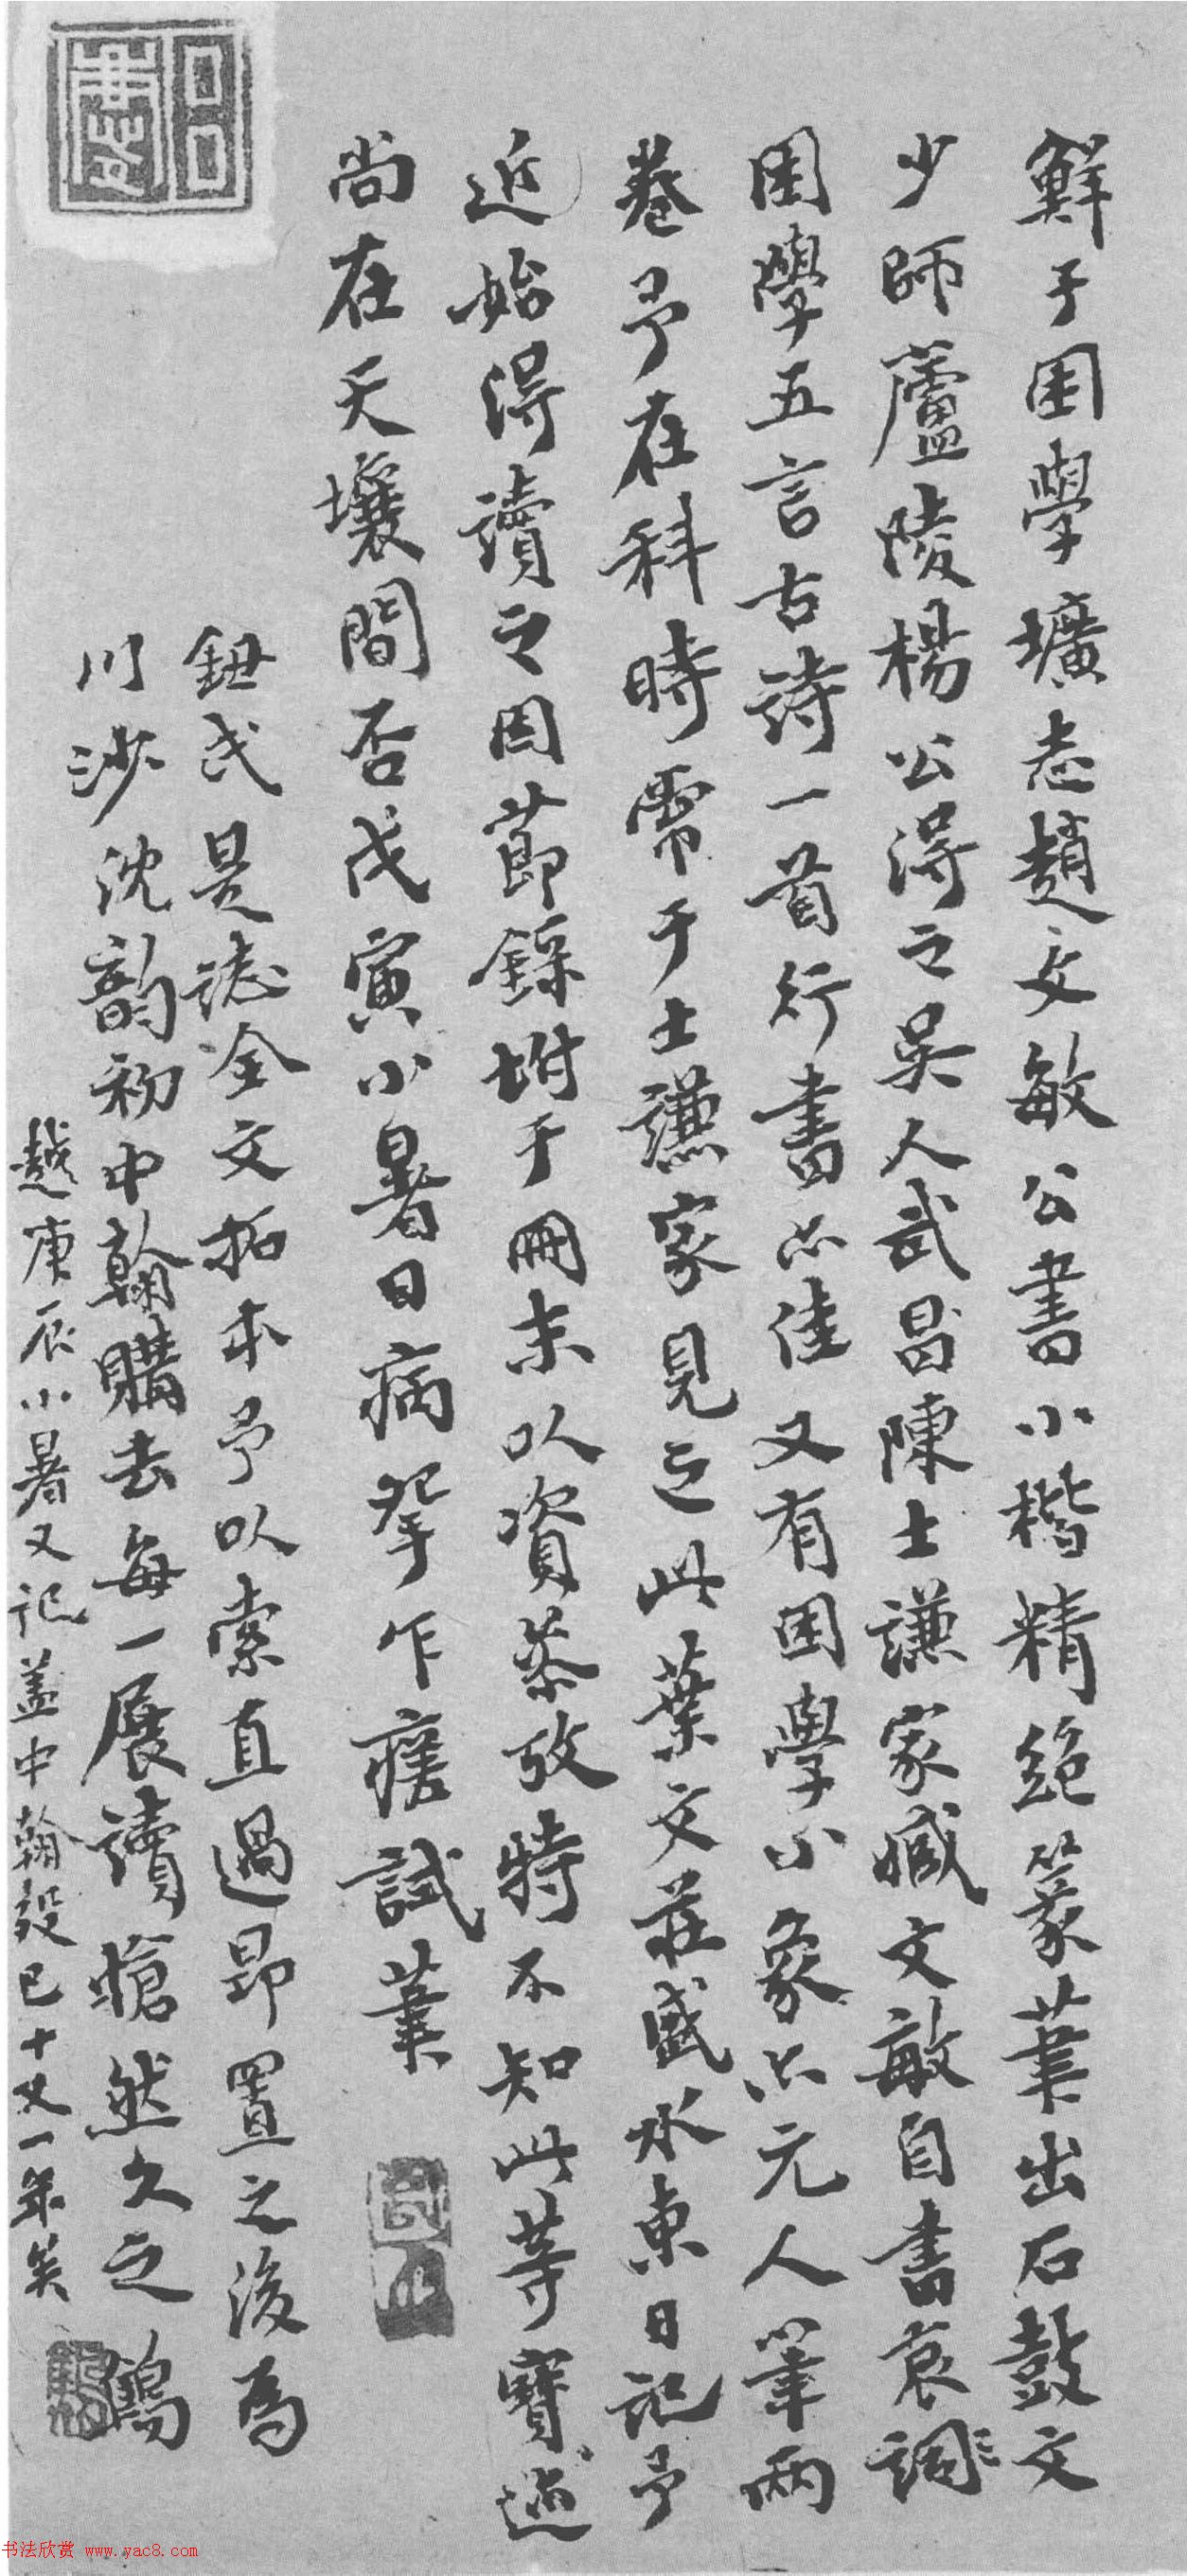 鮮于困學壙志趙文敏公書小楷精絕篆筆出石鼓文
少師蘆陵楊公得之吳人武昌陳士謙家臧文敏自書哀詞
困學五言古詩一首行書亦佳又有困學小象亦元人筆兩
卷予在科時常于士謙家見之此葉文莊盛水東日記予
近始得讀之因節錄坿于冊末以資叅攷特不知此等寶蹟
尚在天壤間否戊寅小暑日病孥乍瘥試筆
鈕氏是誌全文拓本予以索直過昂置之後為
川沙沈韵初中翰購去每一展讀愴然久之鶴
越庚辰小暑又記盖中翰歿已十又一年矣
书法欣赏 www.yac8.com